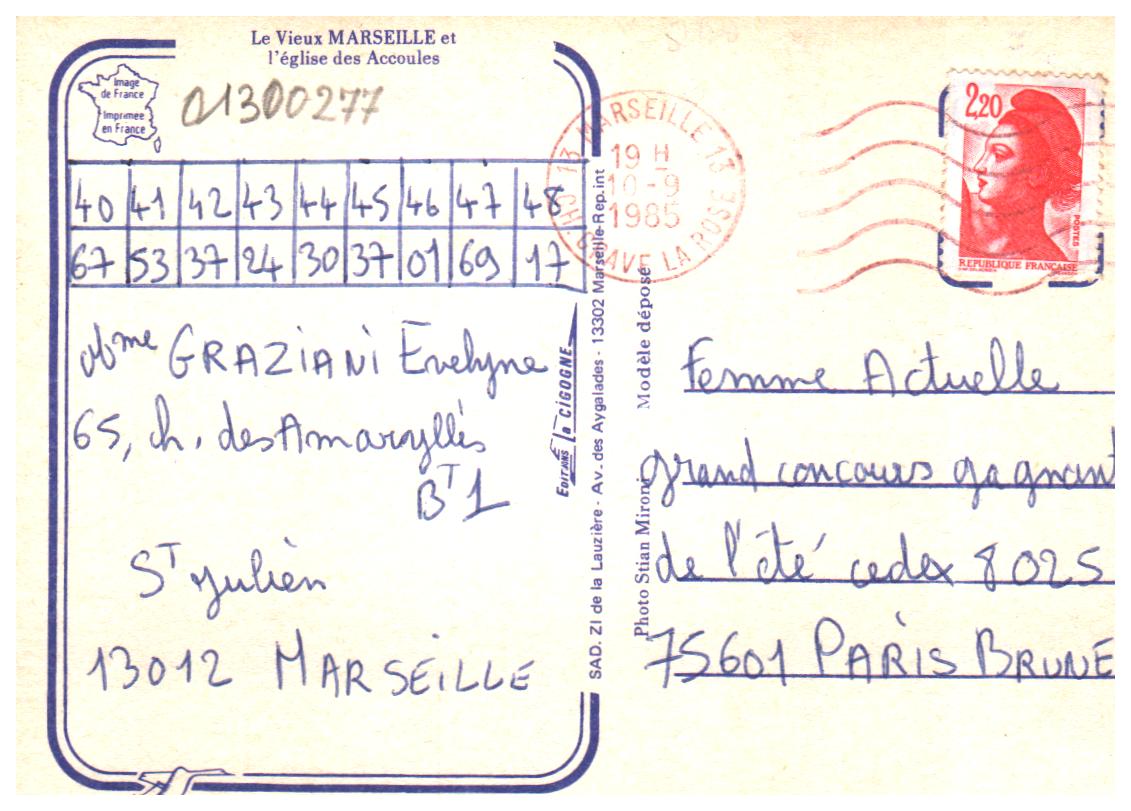 Le Vieux MARSEILLE et
l'église des Accoules
Image
de France
Imprimée
en France
01300277
40 41 42 43 44 45 46 47 48
67 53 37 24 30 37 01 69 17
Mme GRAZIANI Evelyne
65, ch. des Amaryllis
BT 1
ST Julien
13012 MARSEILLE
EDITIONS la CIGOGNE
SAD. ZI de la Lauzière - Av. des Aygalades - 13302 Marseille-Rep.int
Photo Stian Mironi
Modèle déposé
13 MARSEILLE 13
19 H
10-9
1985
LA ROSE
2,20
POSTES
REPUBLIQUE FRANÇAISE
Femme Actuelle
grand concours gagnant
de l'été cedex 8025
75601 PARIS BRUNE